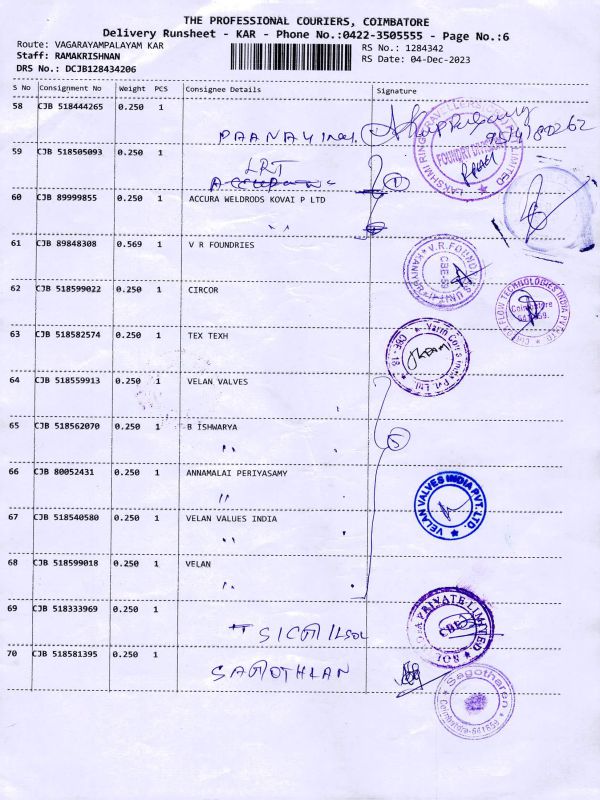 THE PROFESSIONAL COURIERS, COIMBATORE
Delivery Runsheet - KAR - Phone No.:0422-3505555 - Page No.:6
Route: VAGARAYAMPALAYAM KAR
RS No.: 1284342
Staff: RAMAKRISHNAN
RS Date: 04-Dec-2023
DRS No.: DCJB128434206
S No Consignment No Weight PCS Consignee Details Signature
58 CJB 518444265 0.250 1
95141 80262
59 CJB 518505093 0.250 1
LRT
FOUNDRY DIVISION
60 CJB 89999855 0.250 1 ACCURA WELDRODS KOVAI P LTD
61 CJB 89848308 0.569 1 V R FOUNDRIES
V.R.FOUNDRIES UNIT
CBE-59
62 CJB 518599022 0.250 1 CIRCOR
FLOW TECHNOLOGIES INDIA PVT. LTD
Coimbatore
641 659.
63 CJB 518582574 0.250 1 TEX TEXH
CBE - 18
64 CJB 518559913 0.250 1 VELAN VALVES
65 CJB 518562070 0.250 1 B ISHWARYA
5
66 CJB 80052431 0.250 1 ANNAMALAI PERIYASAMY
VELAN VALVES INDIA PVT. LTD.
67 CJB 518540580 0.250 1 VELAN VALUES INDIA
68 CJB 518599018 0.250 1 VELAN
69 CJB 518333969 0.250 1
PRIVATE LIMITED
CBE
70 CJB 518581395 0.250 1
SAGOTHLAN
Sagotharan
Coimbatore-641659